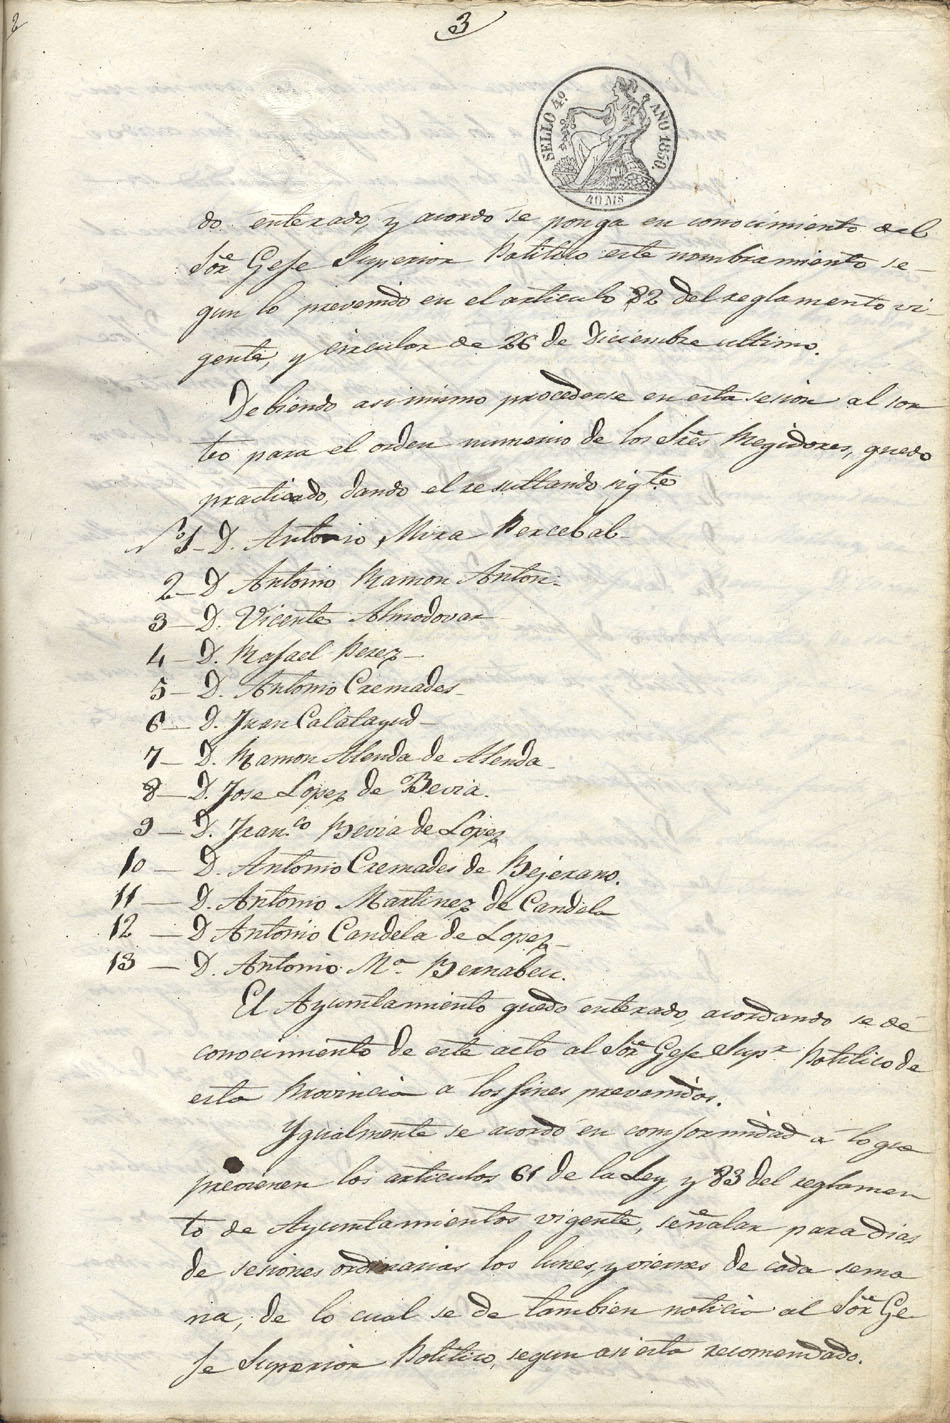 2
3
SELLO 4º AÑO 1850.
40 Ms
do enterado, y acordo se ponga en conocimiento del
Sor Gefe Superior Politico este nombramiento se-
gun lo prevenido en el articulo 82 del reglamento vi-
gente, y circular de 26 de Diciembre ultimo.
Debiendo asi mismo procederse en esta sesion al sor
teo para el orden numerio de los Sres Regidores, quedo
practicado, dando el resultando sigte
Nº 1- D. Antonio Mira Percebal-
2- D Antonio Ramon Anton-
3- D. Vicente Almodovar
4- D. Rafael Perez-
5- D. Antonio Cremades-
6- D. Juan Calatayud-
7- D. Ramon Alenda de Alenda-
8- D. Jose Lopez de Bevia.
9- D. Franco Bevia de Lopez
10- D. Antonio Cremades de Bejerano.
11- D. Antonio Martinez de Candela
12- D Antonio Candela de Lopez-
13- D. Antonio Ma Bernabeu.
El Ayuntamiento quedó enterado, acordando se dé
conocimiento de este acto al Sor Gefe Supr Politico de
esta Provincia a los fines prevenidos.
Ygualmente se acordó en conformidad á lo que
previenen los articulos 61 de la Ley y 83 del reglamen
to de Ayuntamientos vigente, señalar para dias
de sesiones ordinarias los lunes, y viernes de cada sema
na, de lo cual se de tambien noticia al Sor Ge-
fe Superior Politico, segun asi esta recomendado.